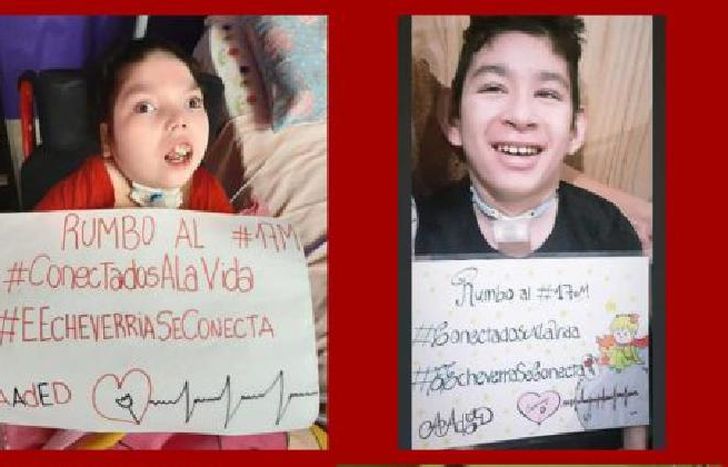 RUMBO AL #17M
#CONECTADOSALAVIDA
#EECHEVERRIASECONECTA
AAdED
Rumbo al #17M
#ConectadosALaVida
#EEcheverriaSeConecta